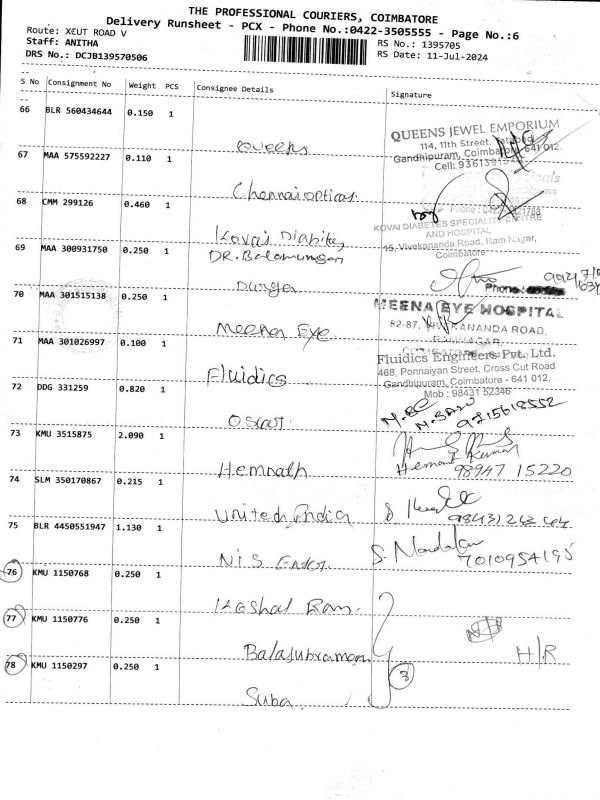 THE PROFESSIONAL COURIERS, COIMBATORE
Delivery Runsheet - PCX - Phone No.:0422-3505555 - Page No.:6
Route: X€UT ROAD V
Staff: ANITHA
DRS No.: DCJB139570506
RS No.: 1395705
RS Date: 11-Jul-2024
S No Consignment No Weight PCS Consignee Details Signature
66 BLR 560434644 0.150 1 Queens
QUEENS JEWEL EMPORIUM
114, 11th Street,
Gandhipuram, Coimbatore 641 012.
67 MAA 575592227 0.110 1 Chennai opticas.
68 CMM 299126 0.460 1 Kovai Diabites
KOVAI DIABETES SPECIALITY CENTRE
AND HOSPITAL
15, Vivekananda Road, Ram Nagar,
Coimbatore
69 MAA 300931750 0.250 1 DR. Balamurugan
Durga
Phone:
70 MAA 301515138 0.250 1 Meena Eye
MEENA EYE HOSPITAL
82-87, VIVEKANANDA ROAD,
RAMNAGAR,
71 MAA 301026997 0.100 1 Fluidics
Fluidics Engineers Pvt. Ltd.
468, Ponnaiyan Street, Cross Cut Road
Gandhipuram, Coimbatore - 641 012.
Mob : 98431 52346
72 DDG 331259 0.820 1 Oscar
73 KMU 3515875 2.090 1 Hemnath
Hemanth Kumar
98947 15220
74 SLM 350170867 0.215 1 United India
75 BLR 4450551947 1.130 1 N.I.S
7010954195
76 KMU 1150768 0.250 1 Koshal Ram.
77 KMU 1150776 0.250 1 Balasubramani
H/R
78 KMU 1150297 0.250 1 Suba
3